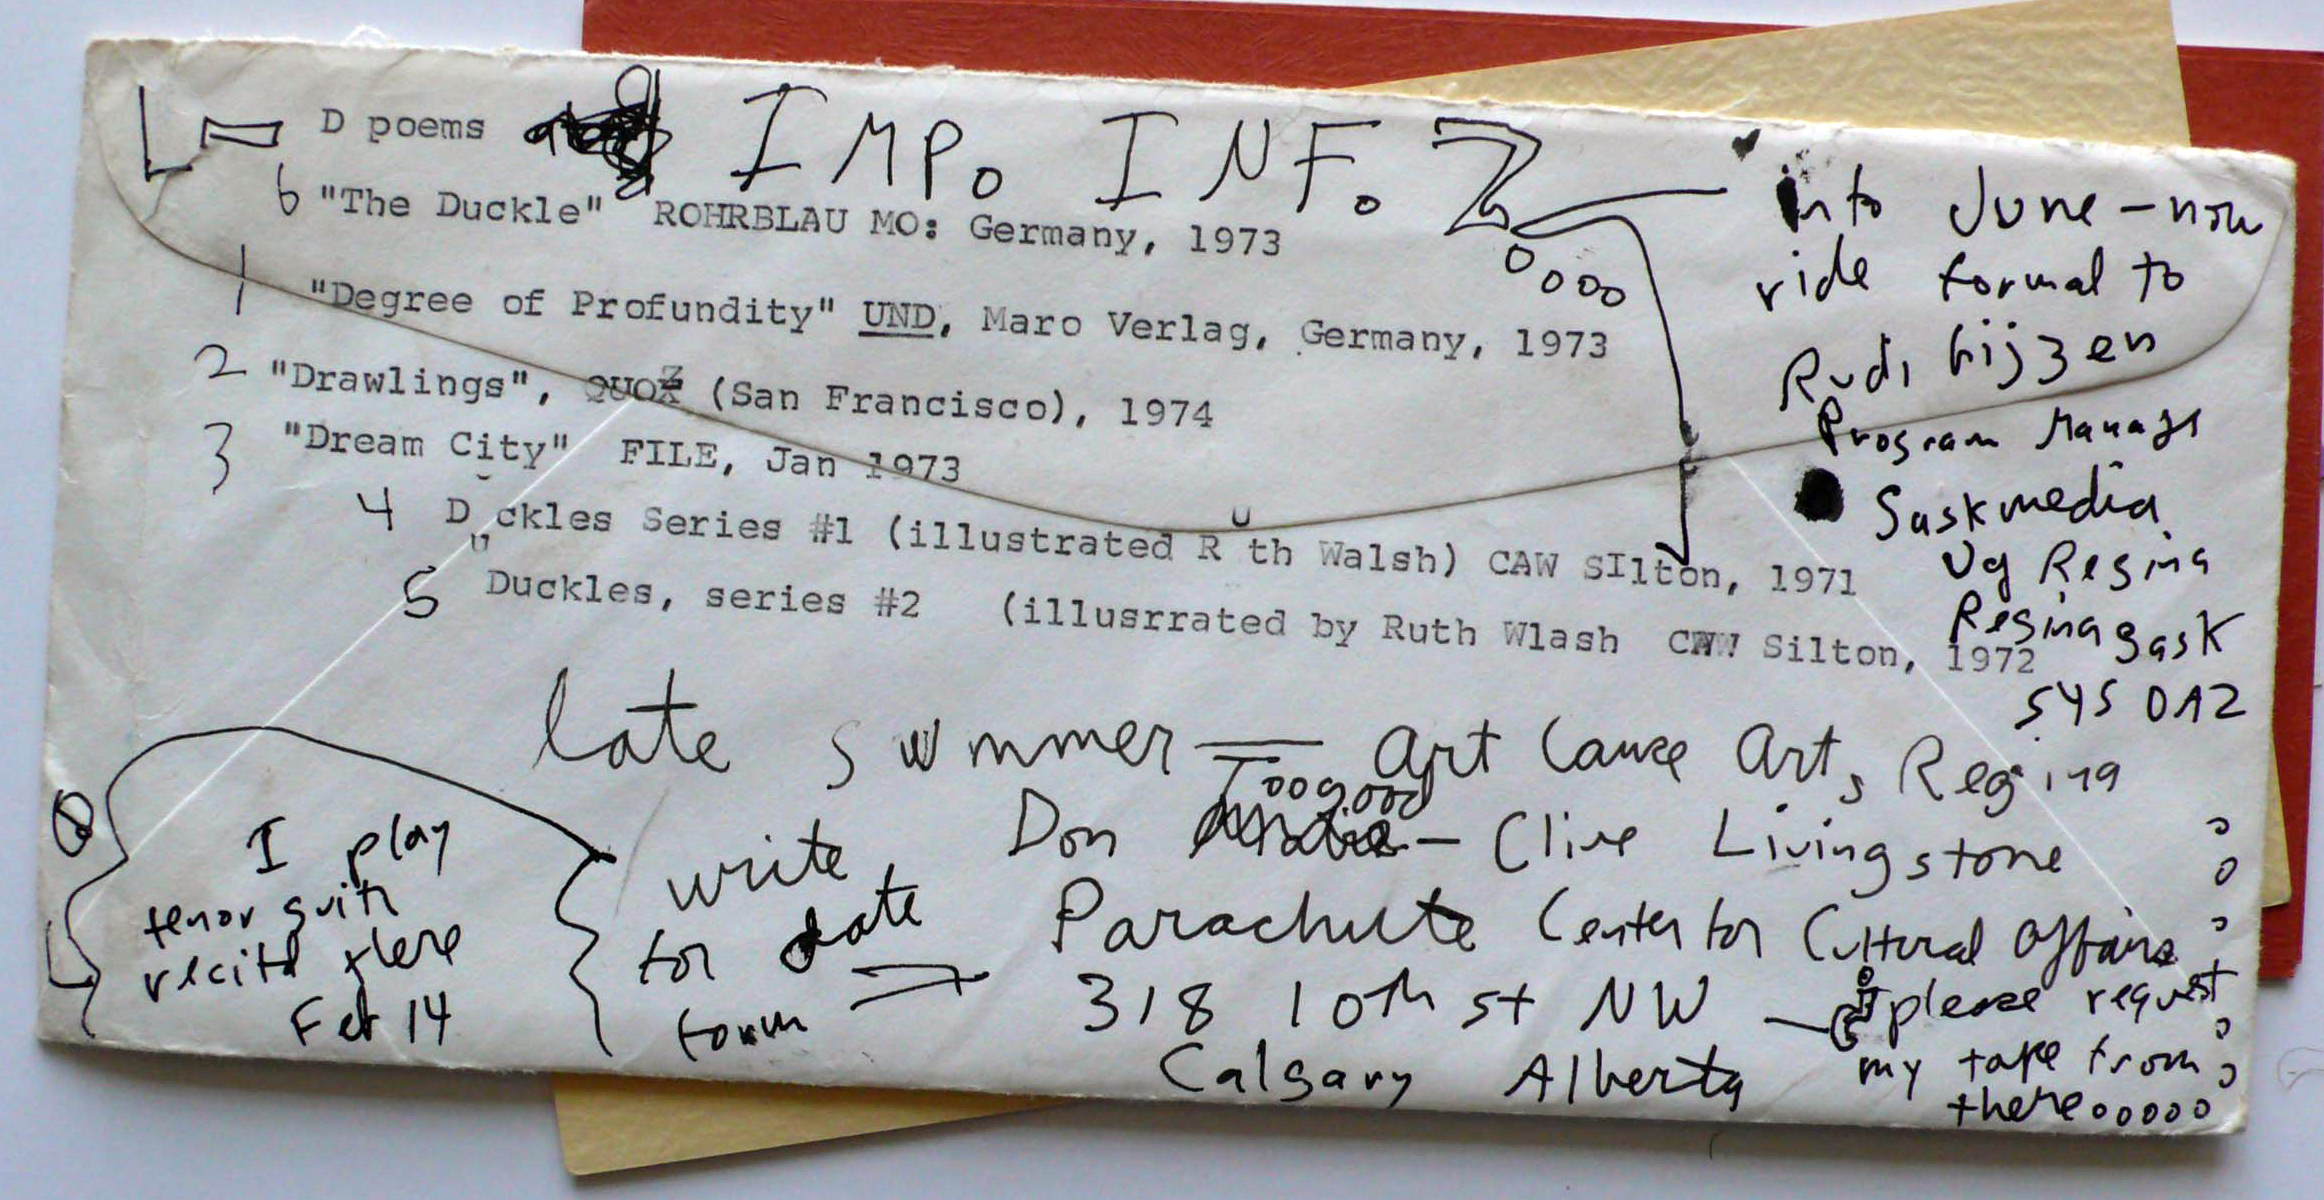 D poems IMPo INF.
6 "The Duckle" ROHRBLAU MO: Germany, 1973
1 "Degree of Profundity" UND, Maro Verlag, Germany, 1973
2 "Drawlings", QUOZ (San Francisco), 1974
3 "Dream City" FILE, Jan 1973
4 Duckles Series #1 (illustrated Ruth Walsh) CAW SIlton, 1971
5 Duckles, series #2 (illusrrated by Ruth Wlash CAW Silton, 1972
into June - now
ride formal to
Rudi
Program
Saskmedia
Regina
Regina Sask
S4S 0A2
late summer — Art Cause Art, Regina
Don Toogood - Clive Livingstone
Parachute Center for Cultural Affairs
318 10th St NW
Calgary Alberta
please request
my tape from
there ooooo
write
for date
form
I play
tenor
recital there
Feb 14